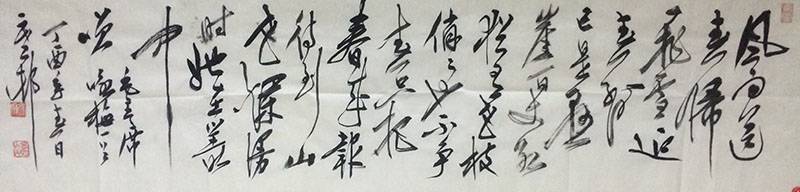 风雨送
春歸
飛雪迎
春到
已是懸
崖百丈冰
犹有花枝
俏俏也不争
春只把
春来報
待到山
花爛漫
时她在叢
中
笑
毛主席
咏梅一首
丁酉年春日